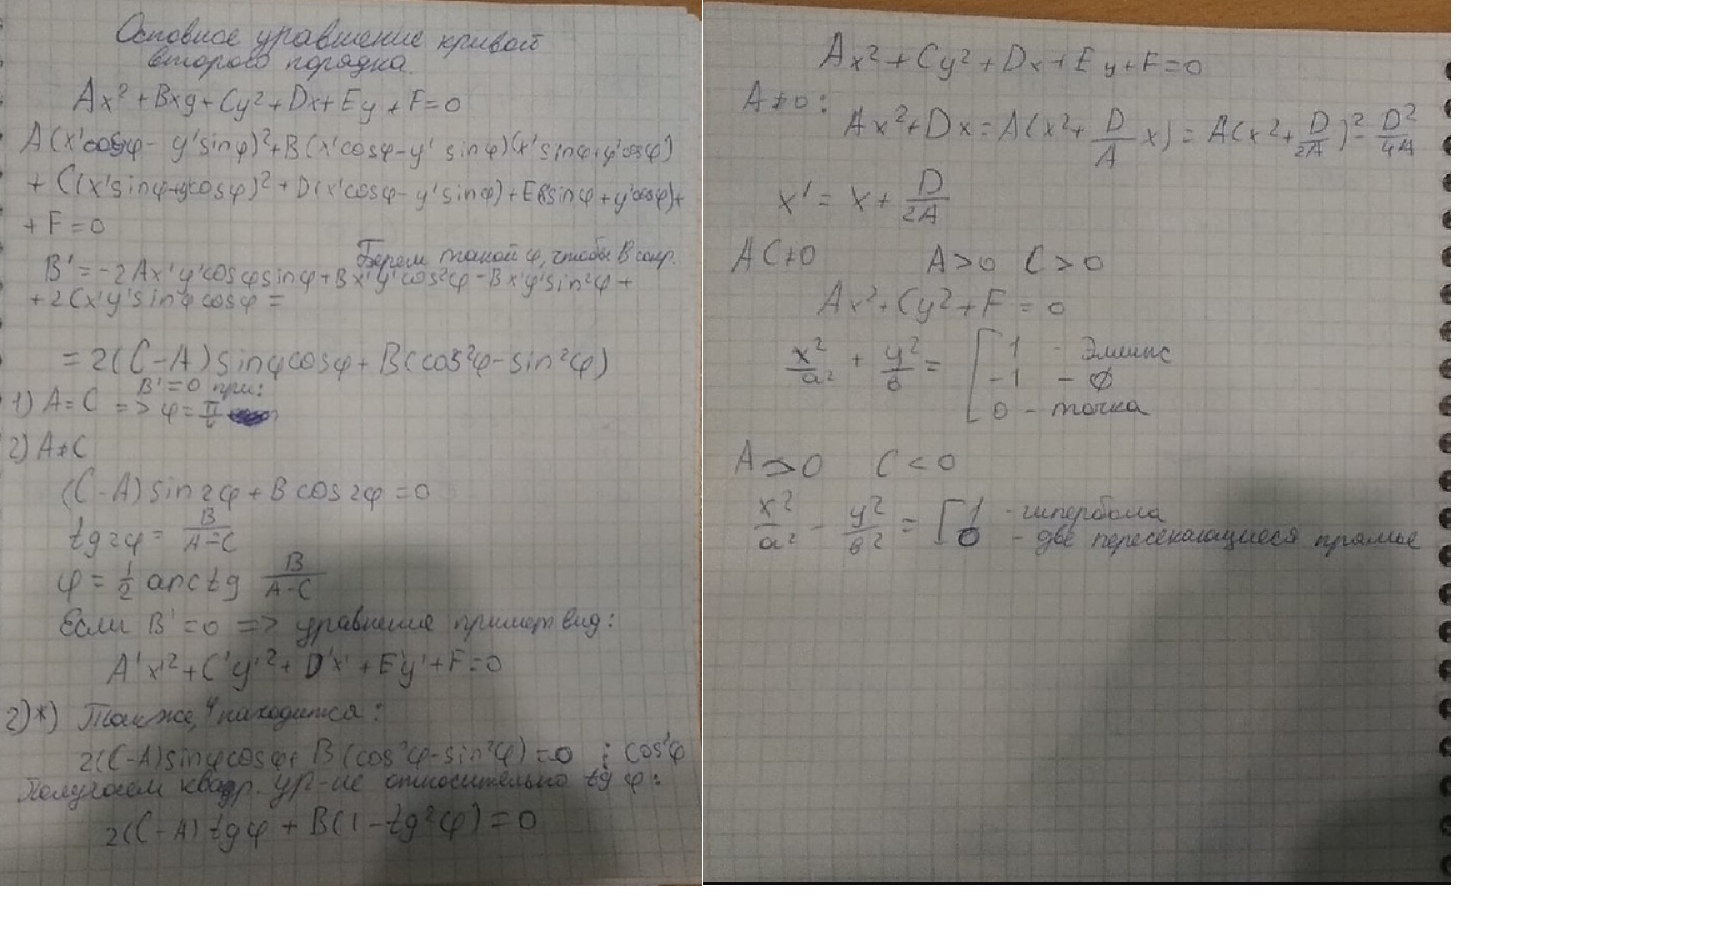 Основное уравнение кривой
второго порядка.
Ax² + Bxy + Cy² + Dx + Ey + F = 0
A(x'cosφ - y'sinφ)² + B(x'cosφ - y'sinφ)(x'sinφ + y'cosφ)
+ C(x'sinφ + y'cosφ)² + D(x'cosφ - y'sinφ) + E(x'sinφ + y'cosφ) +
+ F = 0
Берем такой φ, чтобы B сокр.
B' = -2Ax'y'cosφsinφ + Bx'y'cos²φ - Bx'y'sin²φ +
+ 2Cx'y'sinφcosφ =
= 2(C-A)sinφcosφ + B(cos²φ - sin²φ)
B' = 0 при:
1) A = C => φ = π/4
2) A ≠ C
(C-A)sin2φ + Bcos2φ = 0
tg2φ = B/(A-C)
φ = 1/2 arctg B/(A-C)
Если B' = 0 => уравнение примет вид:
A'x'² + C'y'² + D'x' + E'y' + F = 0
2)*) Также, φ находится:
2(C-A)sinφcosφ + B(cos²φ - sin²φ) = 0 : cos²φ
Получаем квадр. ур-ие относительно tg φ:
2(C-A)tgφ + B(1 - tg²φ) = 0
Ax² + Cy² + Dx + Ey + F = 0
A≠0:
Ax² + Dx = A(x² + D/A x) = A(x² + D/2A)² - D²/4A
x' = x + D/2A
AC≠0 A>0 C>0
Ax² + Cy² + F = 0
x²/a² + y²/в = [ 1 - Эллипс
-1 - ∅
0 - точка
A>0 C<0
x²/a² - y²/в² = [ 1 - гипербола
0 - две пересекающиеся прямые